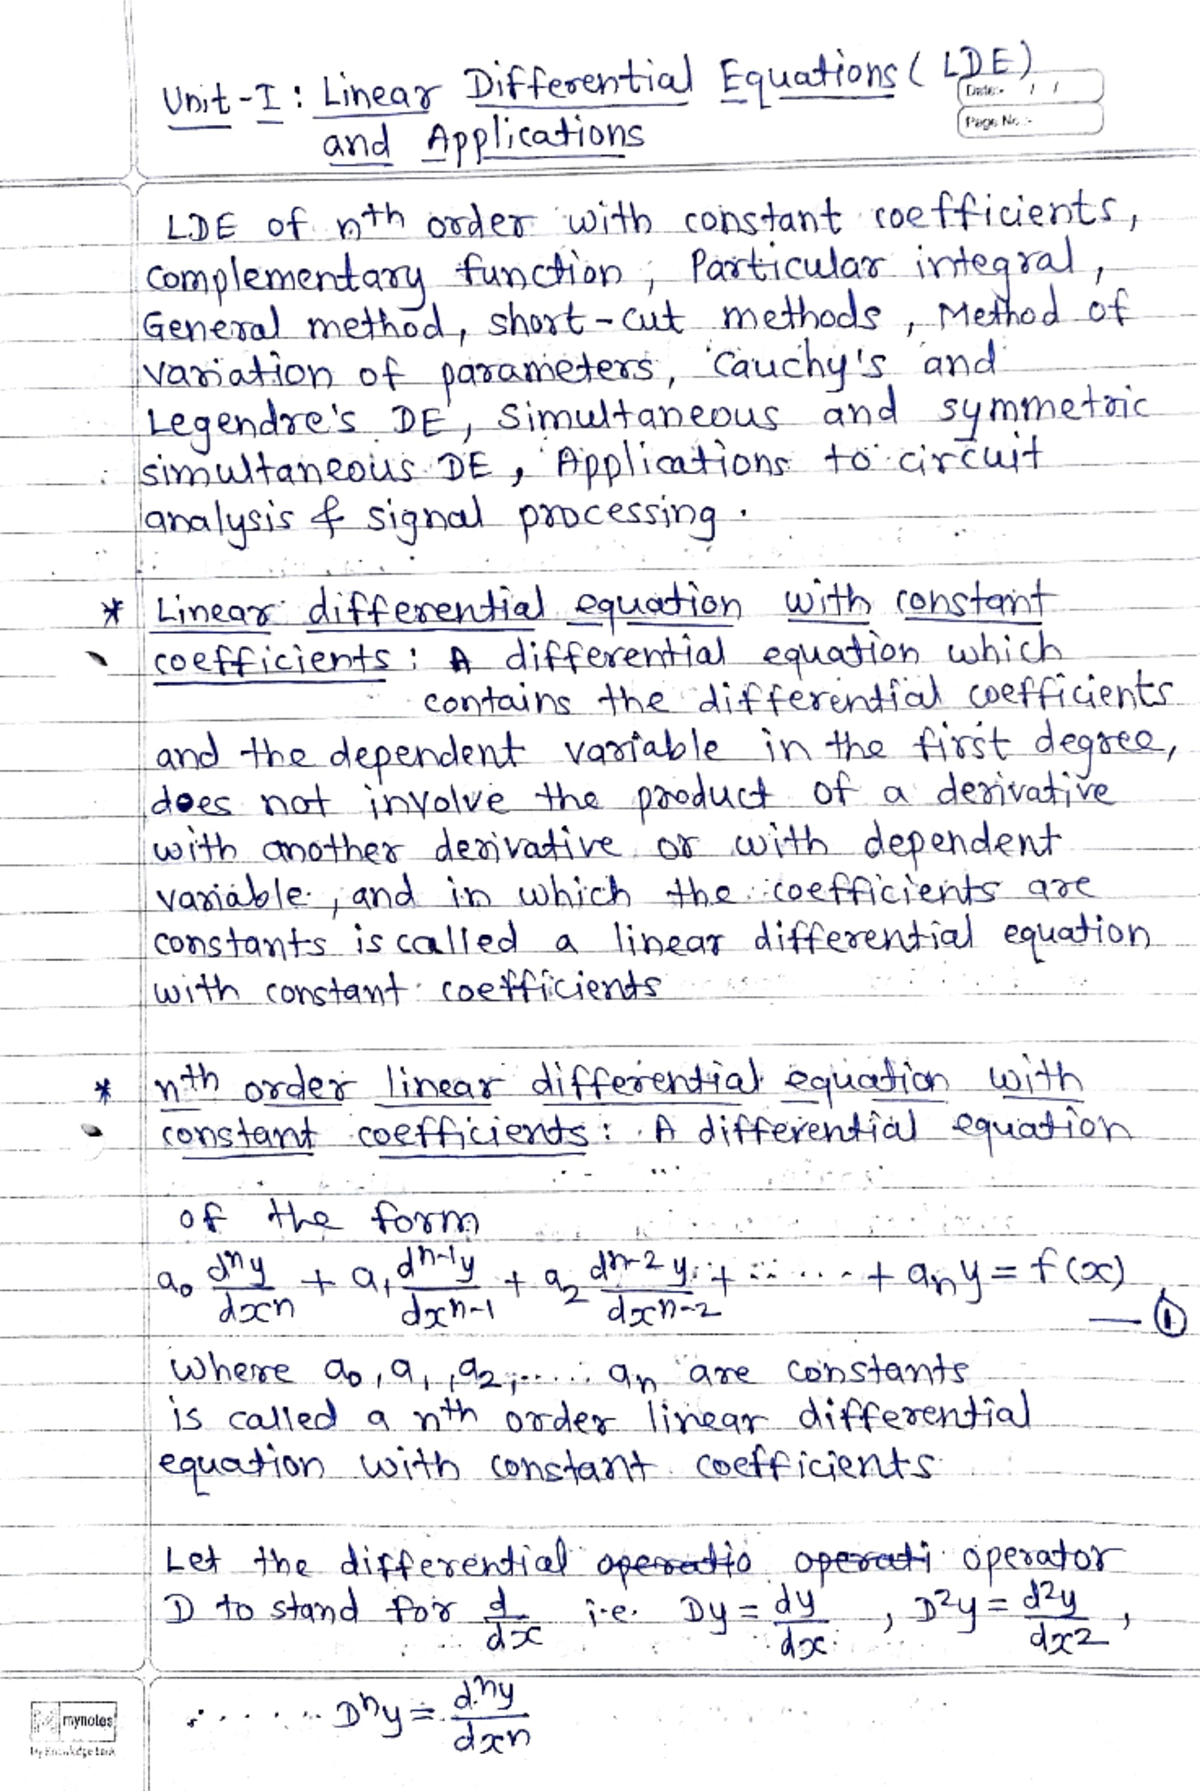 Unit-I : Linear Differential Equations (LDE)
Date:- / /
and Applications
Page No :-
LDE of nth order with constant coefficients,
complementary function, Particular integral,
General method, short-cut methods, Method of
variation of parameters, Cauchy's and
Legendre's DE, Simultaneous and symmetric
simultaneous DE, Applications to circuit
analysis & signal processing.
* Linear differential equation with constant
coefficients : A differential equation which
contains the differential coefficients
and the dependent variable in the first degree,
does not involve the product of a derivative
with another derivative or with dependent
variable, and in which the coefficients are
constants is called a linear differential equation
with constant coefficients
* nth order linear differential equation with
constant coefficients : A differential equation
of the form
a₀ dⁿy/dxⁿ + a₁ dⁿ⁻¹y/dxⁿ⁻¹ + a₂ dⁿ⁻²y/dxⁿ⁻² + ...... + aₙy = f(x) — ①
where a₀, a₁, a₂, ..... aₙ are constants
is called a nth order linear differential
equation with constant coefficients
Let the differential operatio operati operator
D to stand for d/dx i.e. Dy = dy/dx , D²y = d²y/dx² ,
...... Dⁿy = dⁿy/dxⁿ
mynotes